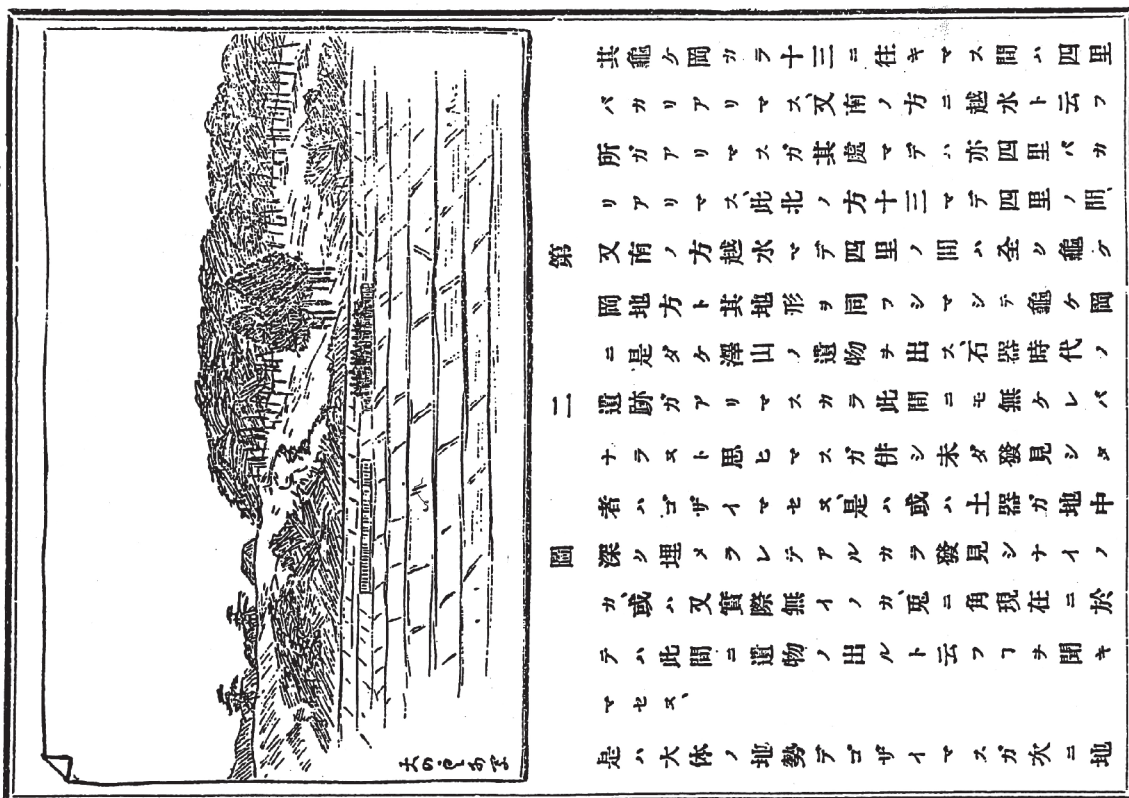 第二圖
其龜ケ岡カラ十三ニ往キマス間ハ四里
バカリアリマス、又南ノ方ニ越水ト云フ
所ガアリマスガ其處マデハ亦四里バカ
リアリマス、此北ノ方十三マデ四里ノ間、
又南ノ方越水マデ四里ノ間ハ全ク龜ケ
岡地方ト其地形ヲ同フシマシテ龜ケ岡
ニ是ダケ澤山ノ遺物ヲ出ス、石器時代ノ
遺跡ガアリマスカラ此間ニモ無ケレバ
ナラヌト思ヒマスガ併シ未ダ發見シタ
者ハゴザイマセヌ、是ハ或ハ土器ガ地中
深ク埋メラレテアルカラ發見シナイノ
カ、或ハ又實際無イノカ、兎ニ角現在ニ於
テハ此間ニ遺物ノ出ルト云フヿヲ聞キ
マセヌ、
是ハ大体ノ地勢デゴザイマスガ次ニ地